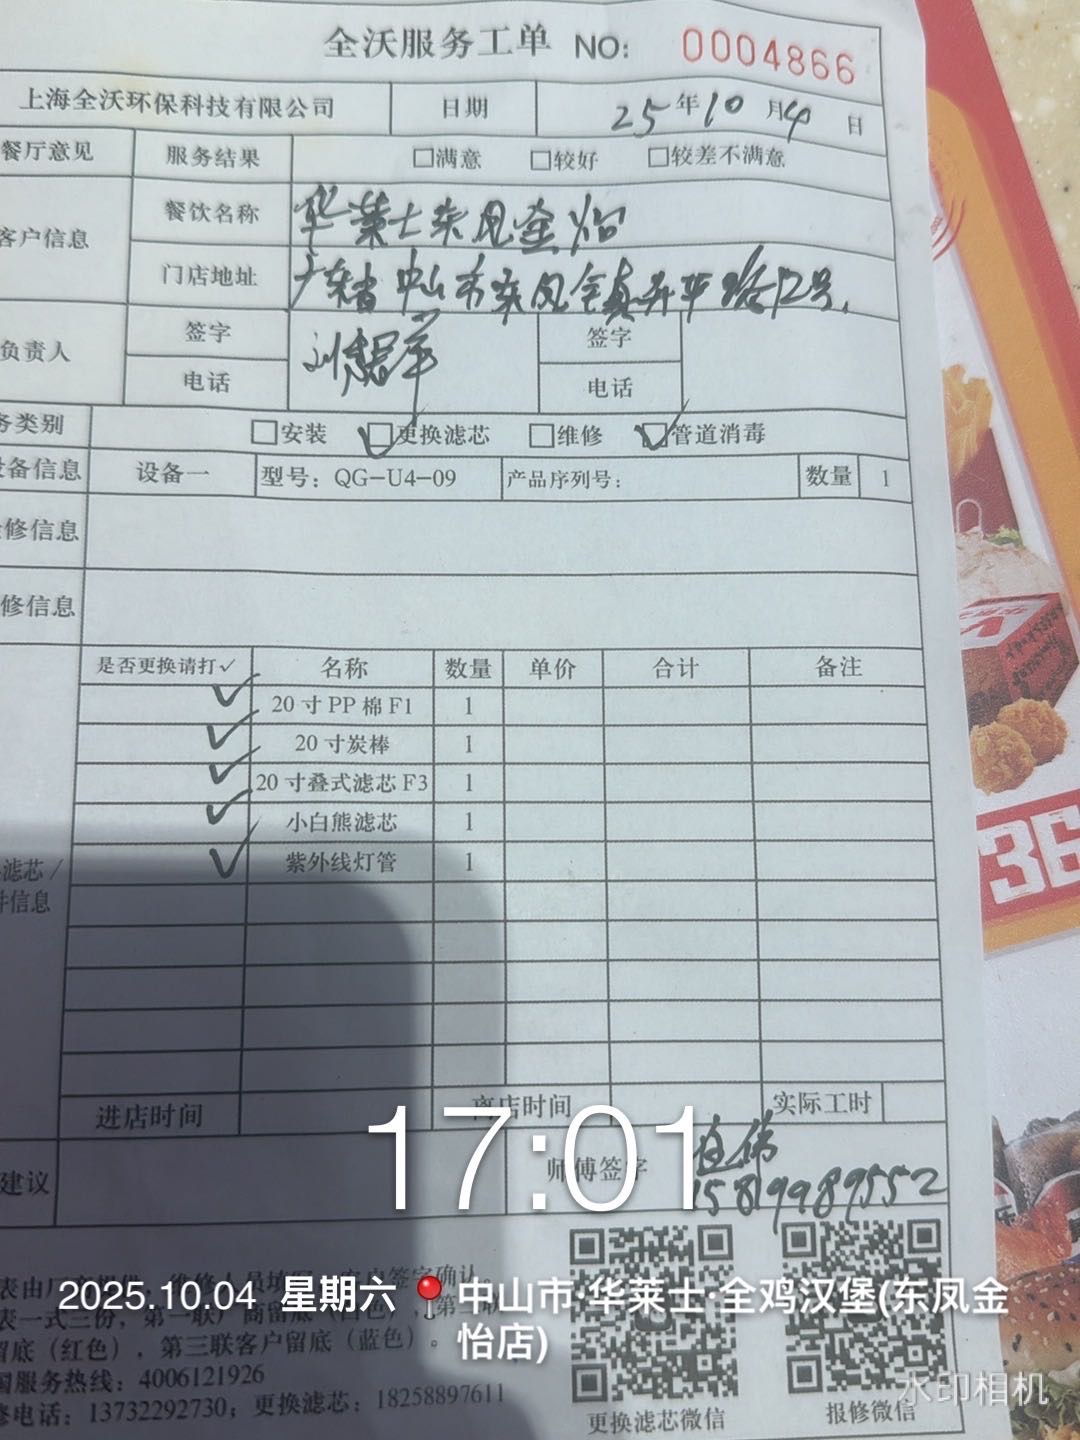 全沃服务工单 NO: 0004866
上海全沃环保科技有限公司 日期 25年10月4日
餐厅意见 服务结果 □满意 □较好 □较差不满意
客户信息 餐饮名称 华莱士东凤金怡
门店地址 广东省中山市东凤镇升平路12号.
负责人 签字 签字
电话 电话
务类别 □安装 ☑更换滤芯 □维修 ☑管道消毒
设备信息 设备一 型号：QG-U4-09 产品序列号： 数量 1
修信息
修信息
是否更换请打✓ 名称 数量 单价 合计 备注
✓ 20寸PP棉F1 1
✓ 20寸炭棒 1
✓ 20寸叠式滤芯F3 1
✓ 小白熊滤芯 1
✓ 紫外线灯管 1
滤芯/
件信息
进店时间 离店时间 实际工时
17:01
建议 师傅签字
15819989552
2025.10.04 星期六 中山市·华莱士·全鸡汉堡(东凤金
怡店)
表一式三份，第一联厂商留底（白色），第二联
留底（红色），第三联客户留底（蓝色）。
国服务热线：4006121926
修电话：13732292730；更换滤芯：18258897611
更换滤芯微信 报修微信
水印相机
36